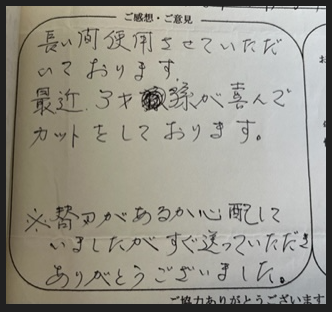 ご感想・ご意見
長い間使用させていただ
いております.
最近.3才孫が喜んで
カットをしております。
※替刃があるか心配して
いましたがすぐ送っていただき
ありがとうございました。
ご協力ありがとうございます